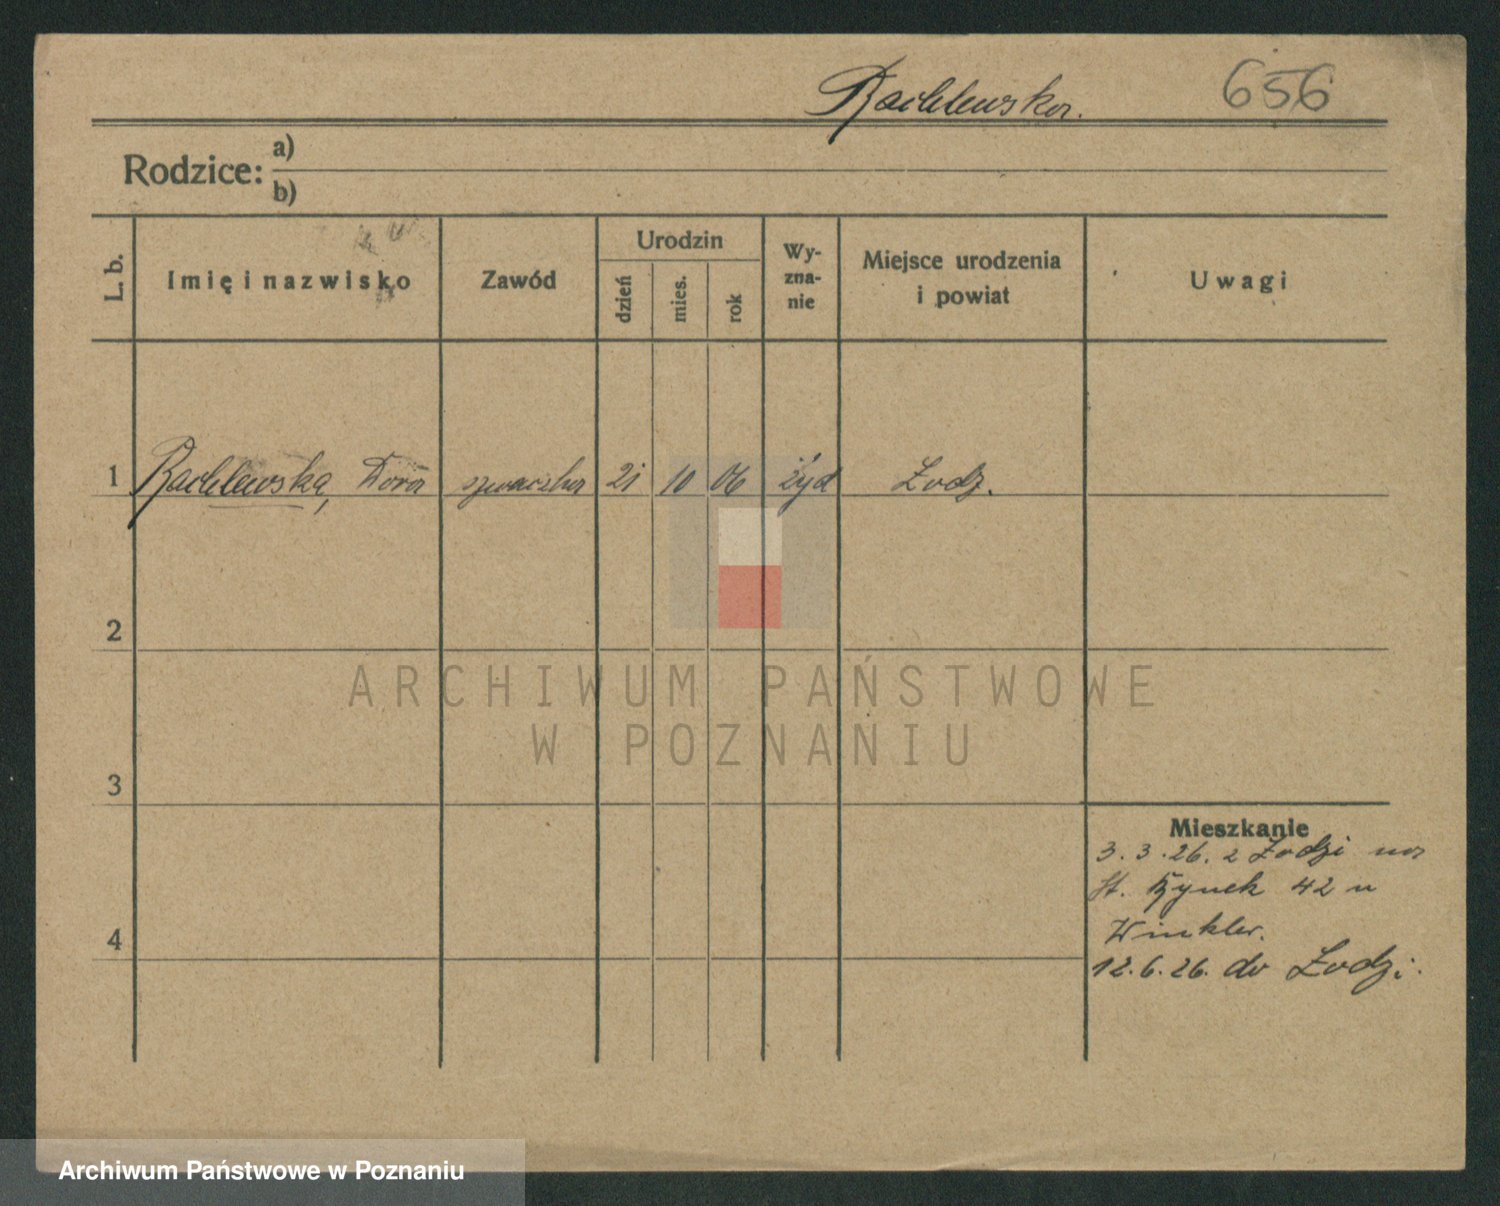 Rachlewska.
656
Rodzice: a)
b)
L. b.
Imię i nazwisko
Zawód
Urodzin
dzień
mies.
rok
Wy-
zna-
nie
Miejsce urodzenia
i powiat
Uwagi
1 Rachlewska, Dora szwaczka 21 10 06 żyd Łodz.
2
3
4
Mieszkanie
3. 3. 26. z Łodzi na
St. Rynek 42 u
Winkler.
12. 6. 26. do Łodzi.
ARCHIWUM PAŃSTWOWE
W POZNANIU
Archiwum Państwowe w Poznaniu